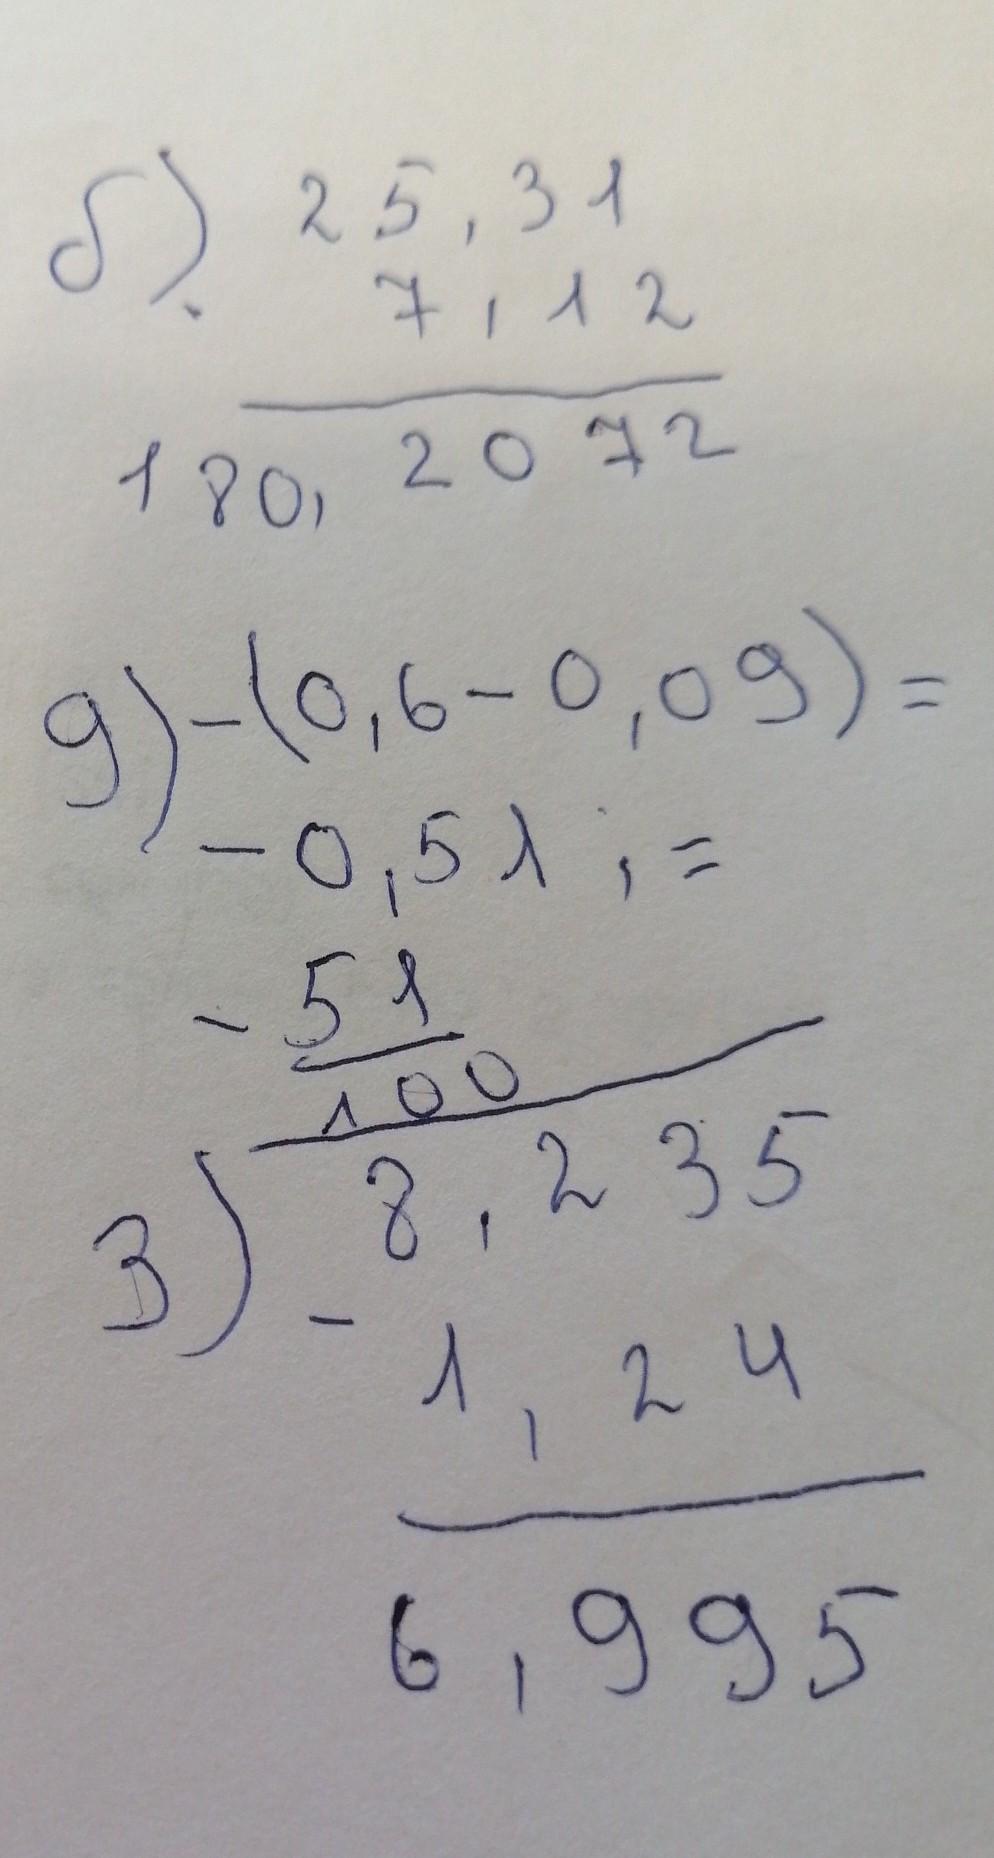 б) 25,31
7,12
180,2072
g) -(0,6-0,09)=
-0,51;=
-51
100
3) 8,235
-
1,24
6,995